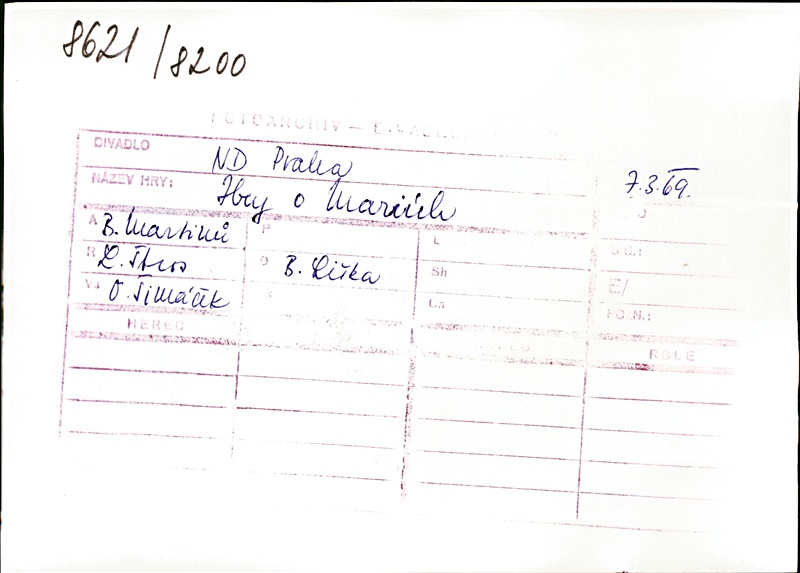 8621/8200
FOTOARCHIV –
DIVADLO ND Praha 7.3.69.
NÁZEV HRY: Hry o Mariích
A B. Martinů P L
R L. Štros O B. Liška Sh
Vs O. Šimáček Ca
E/
HEREC ROLE